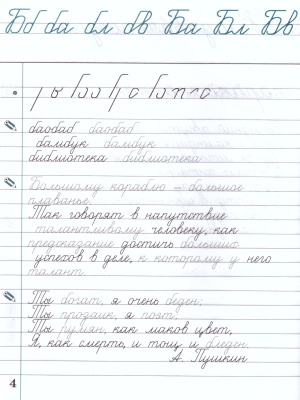 Бб ба бл бв Ба Бл Бв
баобаб баобаб
бамбук бамбук
библиотека библиотека
Большому кораблю – большое
плаванье.
Так говорят в напутствие
талантливому человеку, как
предсказание достичь больших
успехов в деле, к которому у него
талант.
Ты богат, я очень беден;
Ты прозаик, я поэт;
Ты румян, как маков цвет,
Я, как смерть, и тощ и бледен.
А. Пушкин
4